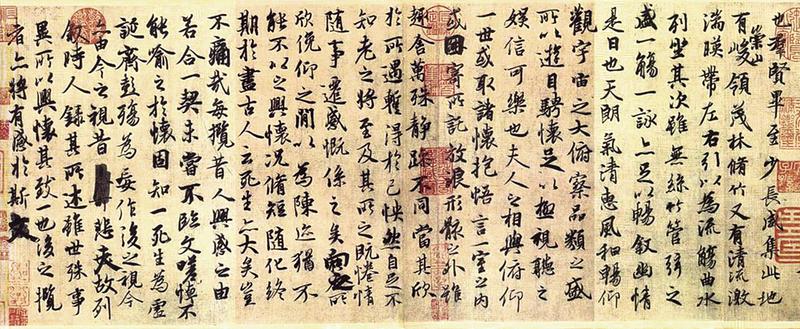 也羣賢畢至少長咸集此地
有崇山峻領茂林脩竹又有清流激
湍暎帶左右引以為流觴曲水
列坐其次雖無絲竹管弦之
盛一觴一詠亦足以暢叙幽情
是日也天朗氣清惠風和暢仰
觀宇宙之大俯察品類之盛
所以遊目騁懷足以極視聽之
娛信可樂也夫人之相與俯仰
一世或取諸懷抱悟言一室之內
或因寄所託放浪形骸之外雖
趣舍萬殊靜躁不同當其欣
於所遇暫得於己怏然自足不
知老之將至及其所之既惓情
隨事遷感慨係之矣向之所
欣俛仰之間以為陳迹猶不
能不以之興懷況脩短隨化終
期於盡古人云死生亦大矣豈
不痛哉每攬昔人興感之由
若合一契未嘗不臨文嗟悼不
能喻之於懷固知一死生為虛
誕齊彭殤為妄作後之視今
亦由今之視昔悲夫故列
叙時人錄其所述雖世殊事
異所以興懷其致一也後之攬
者亦將有感於斯文